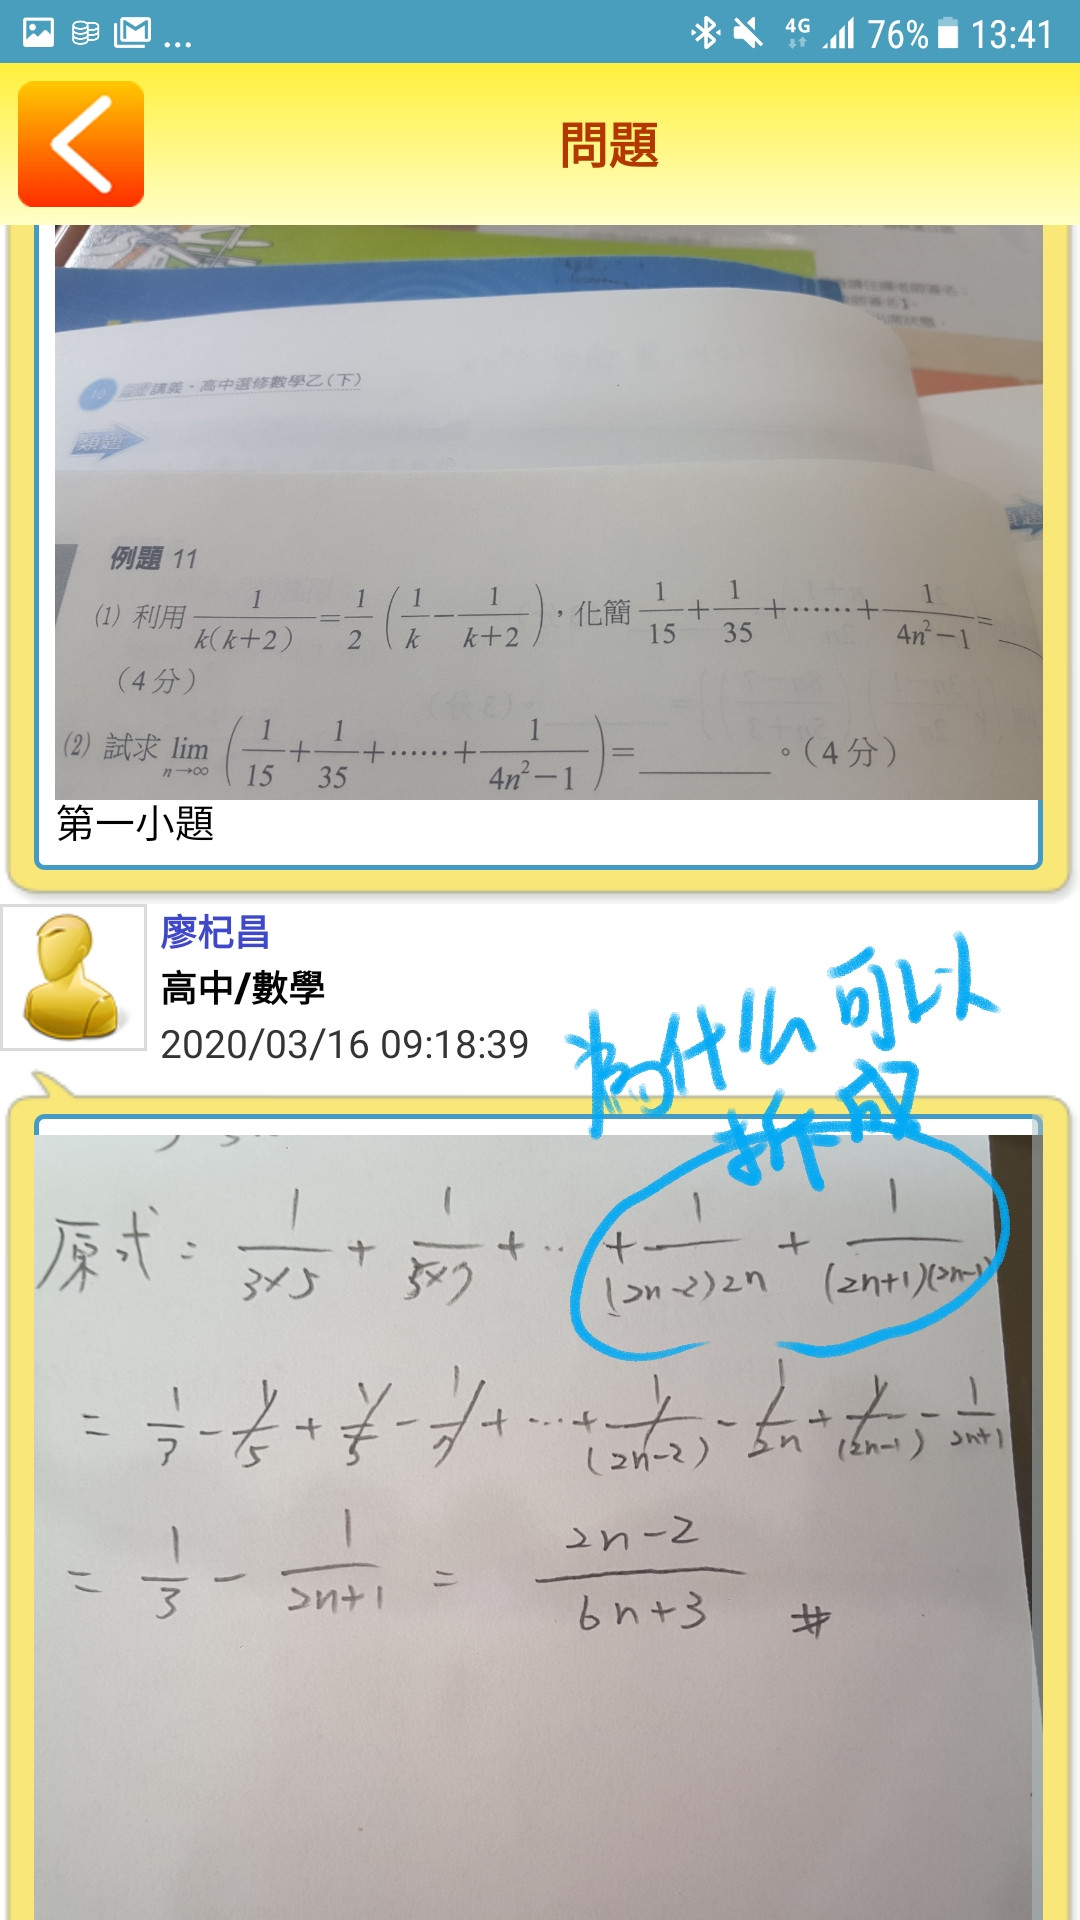 ... 4G 76% 13:41
問題
講義・高中選修數學乙(下)
類題
例題 11
(1) 利用 1/k(k+2) = 1/2 (1/k − 1/k+2),化簡 1/15 + 1/35 + …… + 1/4n²−1 = ___
(4分)
(2) 試求 lim n→∞ (1/15 + 1/35 + …… + 1/4n²−1) = ______。(4分)
第一小題
廖杞昌
高中/數學
2020/03/16 09:18:39
為什么可以
拆成
原式 = 1/3×5 + 1/5×7 + ‥ + 1/(2n-2)2n + 1/(2n+1)(2n-1)
= 1/3 - 1/5 + 1/5 - 1/7 + … + 1/(2n-2) - 1/2n + 1/(2n-1) - 1/2n+1
= 1/3 - 1/2n+1 = 2n-2/6n+3 #